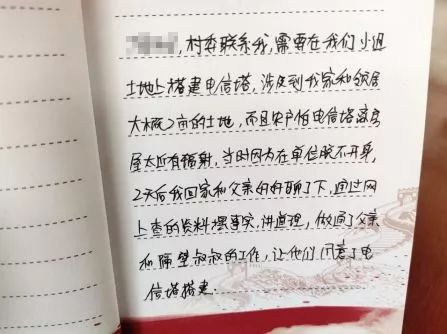 ,村委联系我,需要在我们小组
土地上搭建电信塔,涉及到我家和邻居
大概2亩的土地,而且农户怕电信塔离房
屋太近有辐射,当时因为在单位脱不开身,
2天后我回家和父亲好好聊了下,通过网
上查的资料摆事实,讲道理,做通了父亲
和隔壁叔叔的工作,让他们同意了电
信塔搭建.